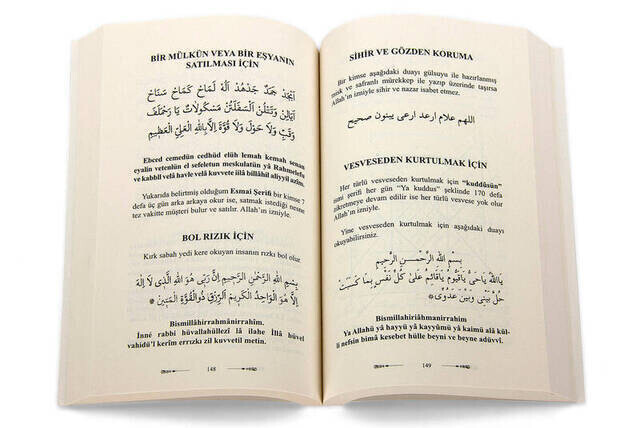 BİR MÜLKÜN VEYA BİR EŞYANIN
SATILMASI İÇİN
وَقِّتْ وَلَا حَوْلَ وَلَا قُوَّةَ اِلَّا بِاللهِ الْعَلِيِّ الْعَظِيمِ
Ebced cemedün cedhüd elüh lemah kemah senan
eyalin vetenlün el sefeletun meskulatün yâ Rahmelefu
ve kabbil velâ havle velâ kuvvete iilâ billâhil aliyyil azîm.
Yukarıda belirtmiş olduğum Esmai Şerifi bir kimse 7
defa üç gün arka arkaya okur ise, satmak istediği nesne
tez vakitte müşteri bulur ve satılır. Allah'ın izniyle.
BOL RIZIK İÇİN
Kırk sabah yedi kere okuyan insanın rızkı bol olur.
بِسْمِ اللهِ الرَّحْمٰنِ الرَّحِيمِ اِنَّ رَبِّى هُوَ اللهُ الَّذِى لَا اِلٰهَ
اِلَّا هُوَ الْوَاحِدُ الْكَرِيمُ الرِّزْقِ ذُو الْقُوَّةِ الْمَتِينُ
Bismillâhirrahmânirrahîm.
İnné rabbi hüvallahüllezî lâ ilahe İllâ hüvel
vahidü'l kerîm errızkı zil kuvvetil metin.
148
SİHİR VE GÖZDEN KORUMA
Bir kimse aşağıdaki duayı gülsuyu ile hazırlanmış
misk ve safranlı mürekkep ile yazıp üzerinde taşırsa
Allah'ın izniyle sihir ve nazar isabet etmez.
اللهم علام ارعد ارعى يبنون صحيح
VESVESEDEN KURTULMAK İÇİN
Her türlü vesveseden kurtulmak için "kuddûsün"
ismi şerifi her gün "Ya kuddus" şeklinde 170 defa
zikretmeye devam edilir ise her türlü vesvese yok olur
Allah'ın izniyle.
Yine vesveseden kurtulmak için aşağıdaki duayı
okuyabilirsiniz.
بِسْمِ اللهِ الرَّحْمٰنِ الرَّحِيمِ
يَا اَللهُ يَا حَىُّ يَا قَيُّومُ يَا قَائِمُ عَلٰى كُلِّ نَفْسٍ بِمَا كَسَبَتْ
حُلْ بَيْنِى وَبَيْنَ عَدُوِّى
Bismillahirıahmanirrahim
Ya Allahü yâ hayyü yâ kayyûmü yâ kaimü alâ kül-
li nefsin bimâ kesebet hülle beyni ve beyne adüvvî.
149